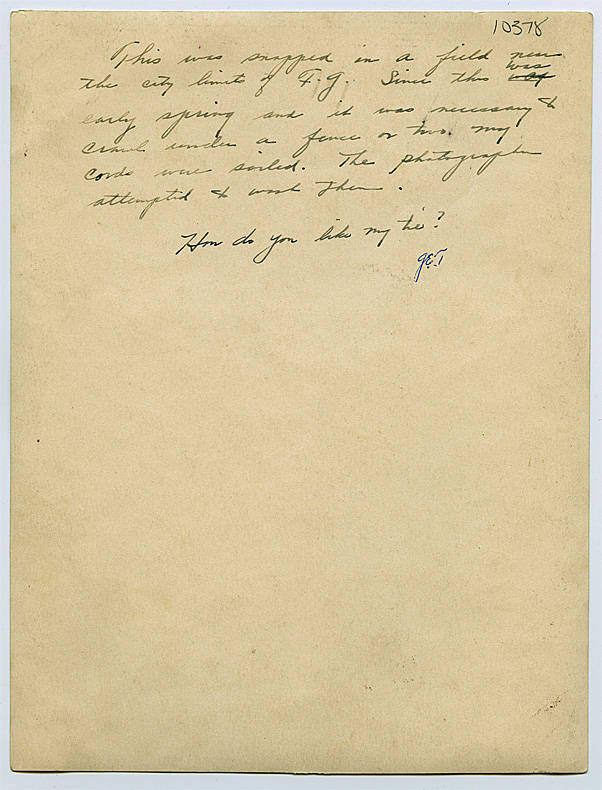 10378
This was snapped in a field near
the city limits of F.G. Since this was
early spring and it was necessary to
crawl under a fence or two. my
cords were soiled. The photographer
attempted to wash them.
How do you like my tie?